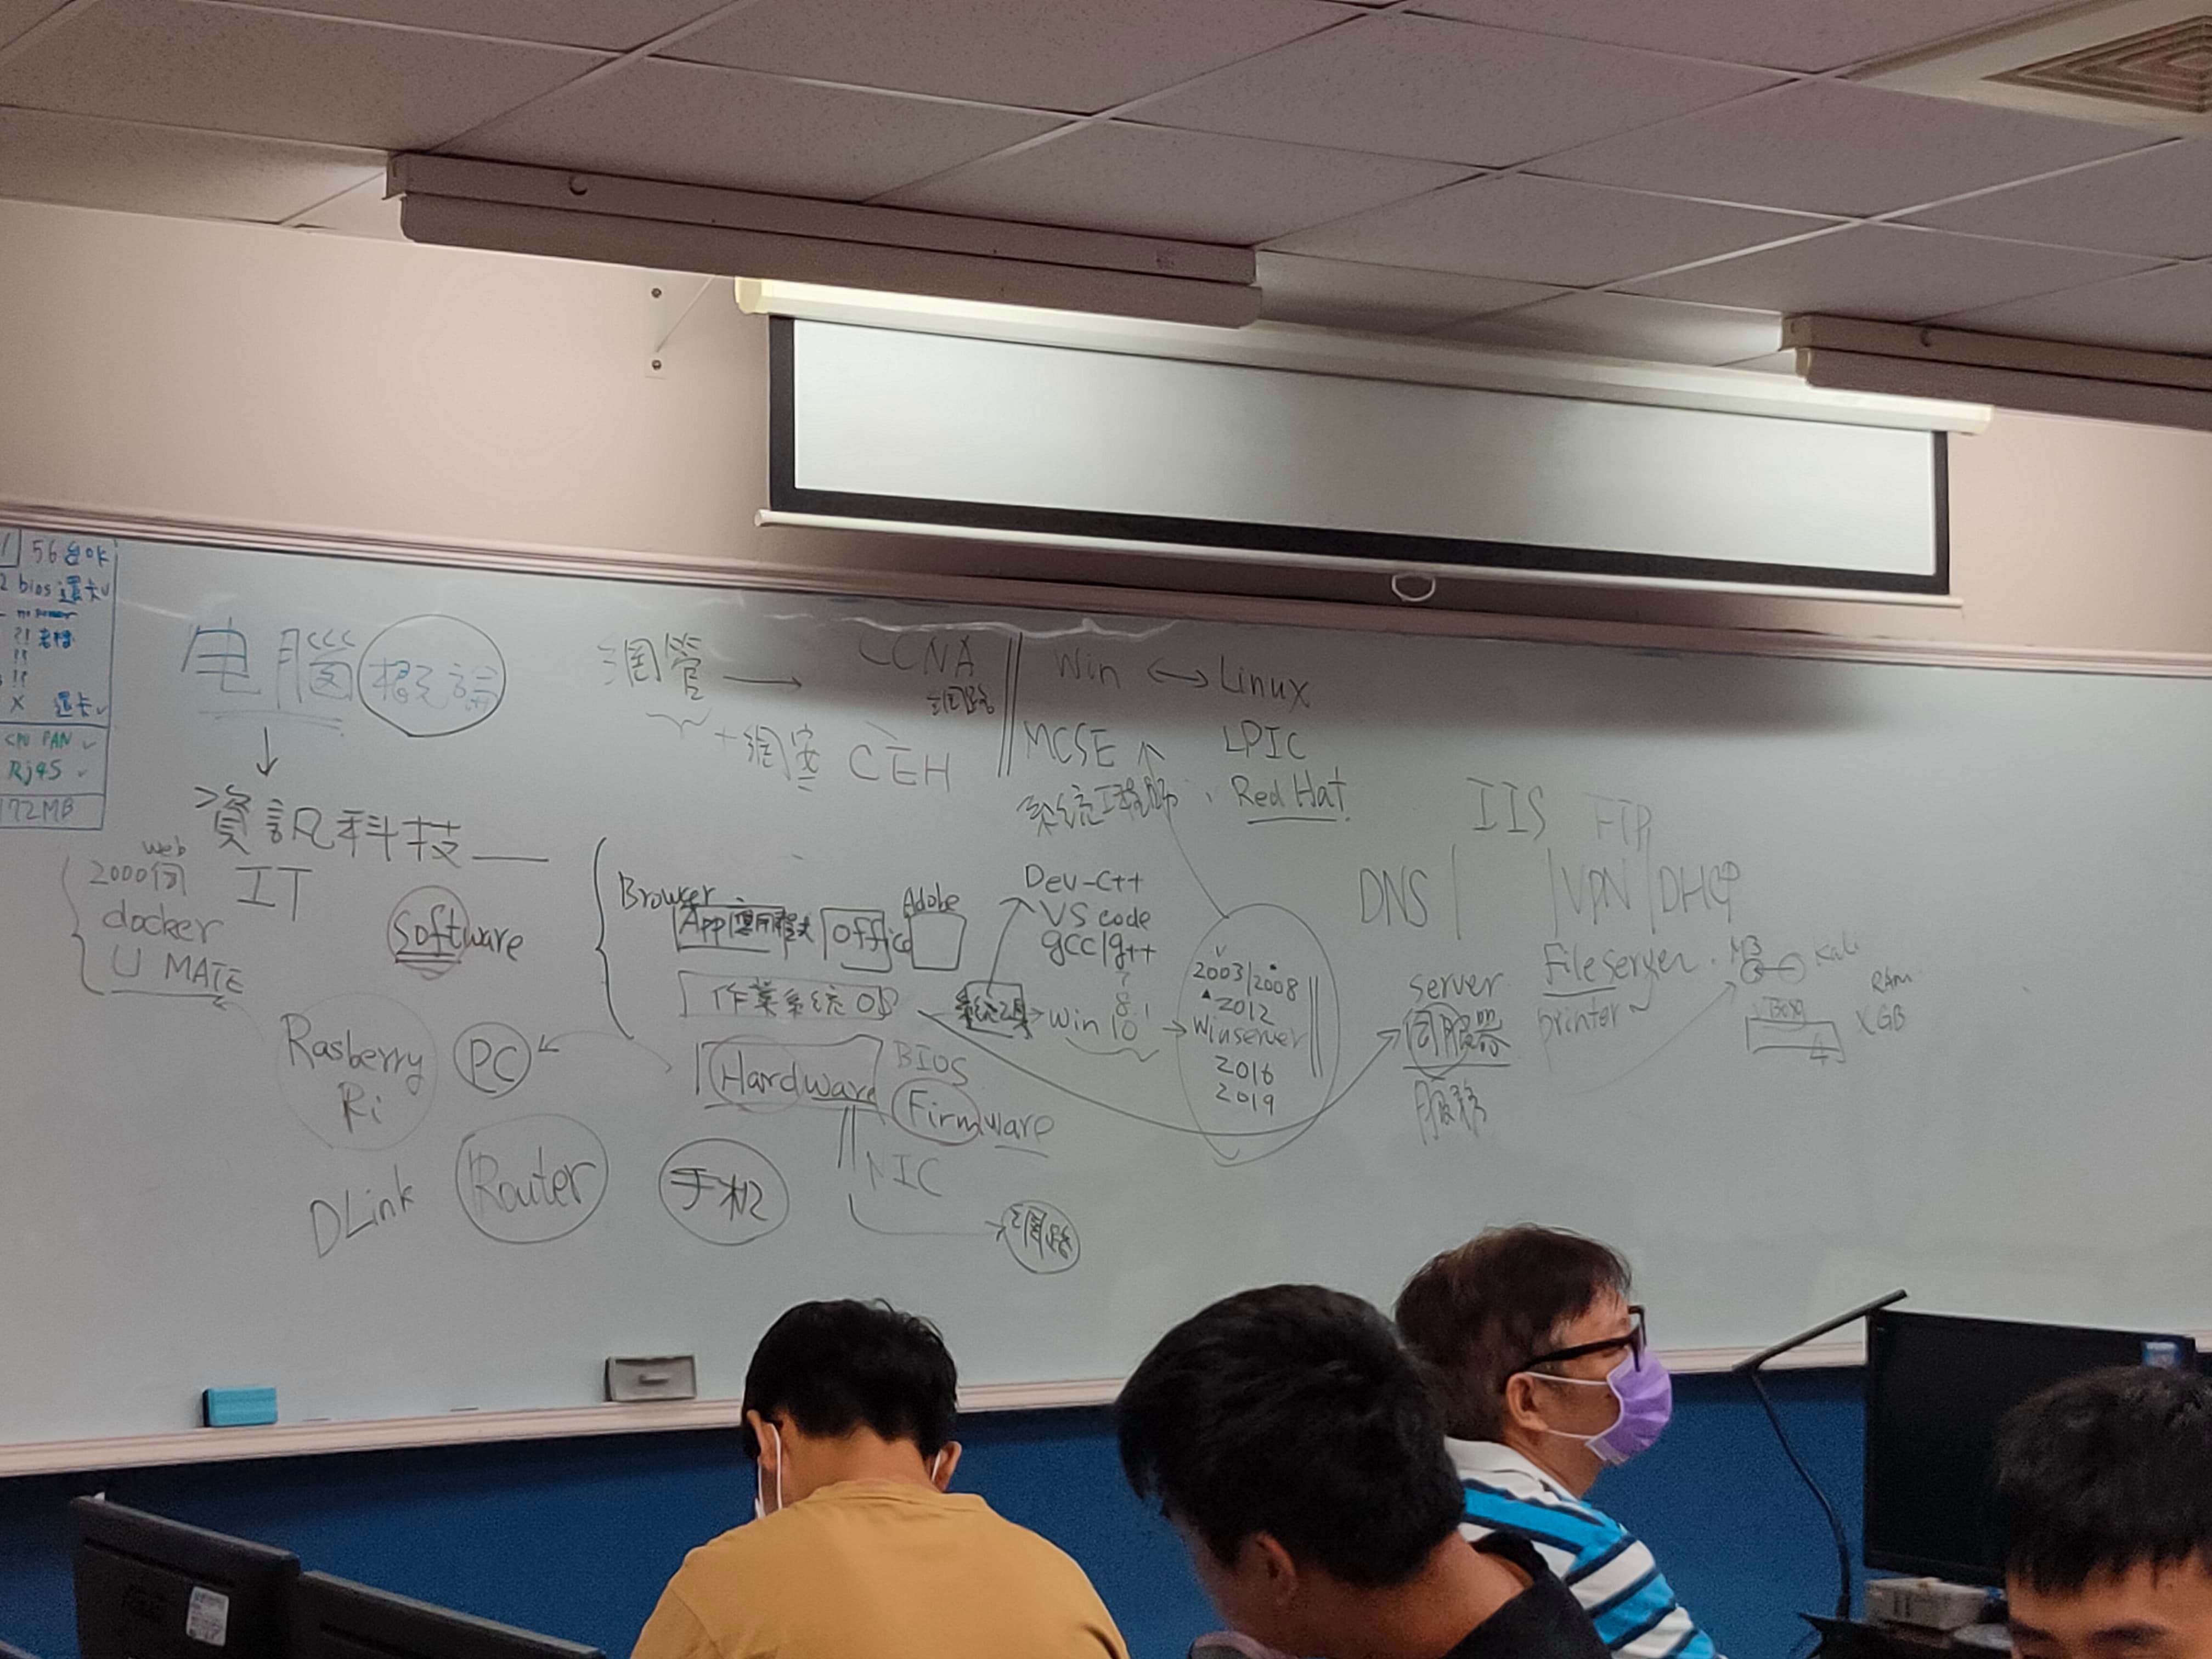 56
bios 還卡
X 還卡
CPU FAN
Rj45
172MB
电腦概論
資訊科技
IT
web
2000個
docker
U MATE
Software
Rasberry
Pi
PC
DLink
Router
手机
網管
+網安 CEH
CCNA
網路
Win ↔ Linux
MCSE
LPIC
系统工程師
Red Hat
Browser
App 應用程式
Office
Adobe
作業系統 OS
Hardware
BIOS
Firmware
NIC
網路
Dev-C++
VS code
gcc/g++
系統工具
7
8.1
Win 10
2003/2008
2012
Winserver
2016
2019
IIS FTP
DNS
VPN
DHCP
server
伺服器
服務
File server
printer
Kali
RAM
X GB